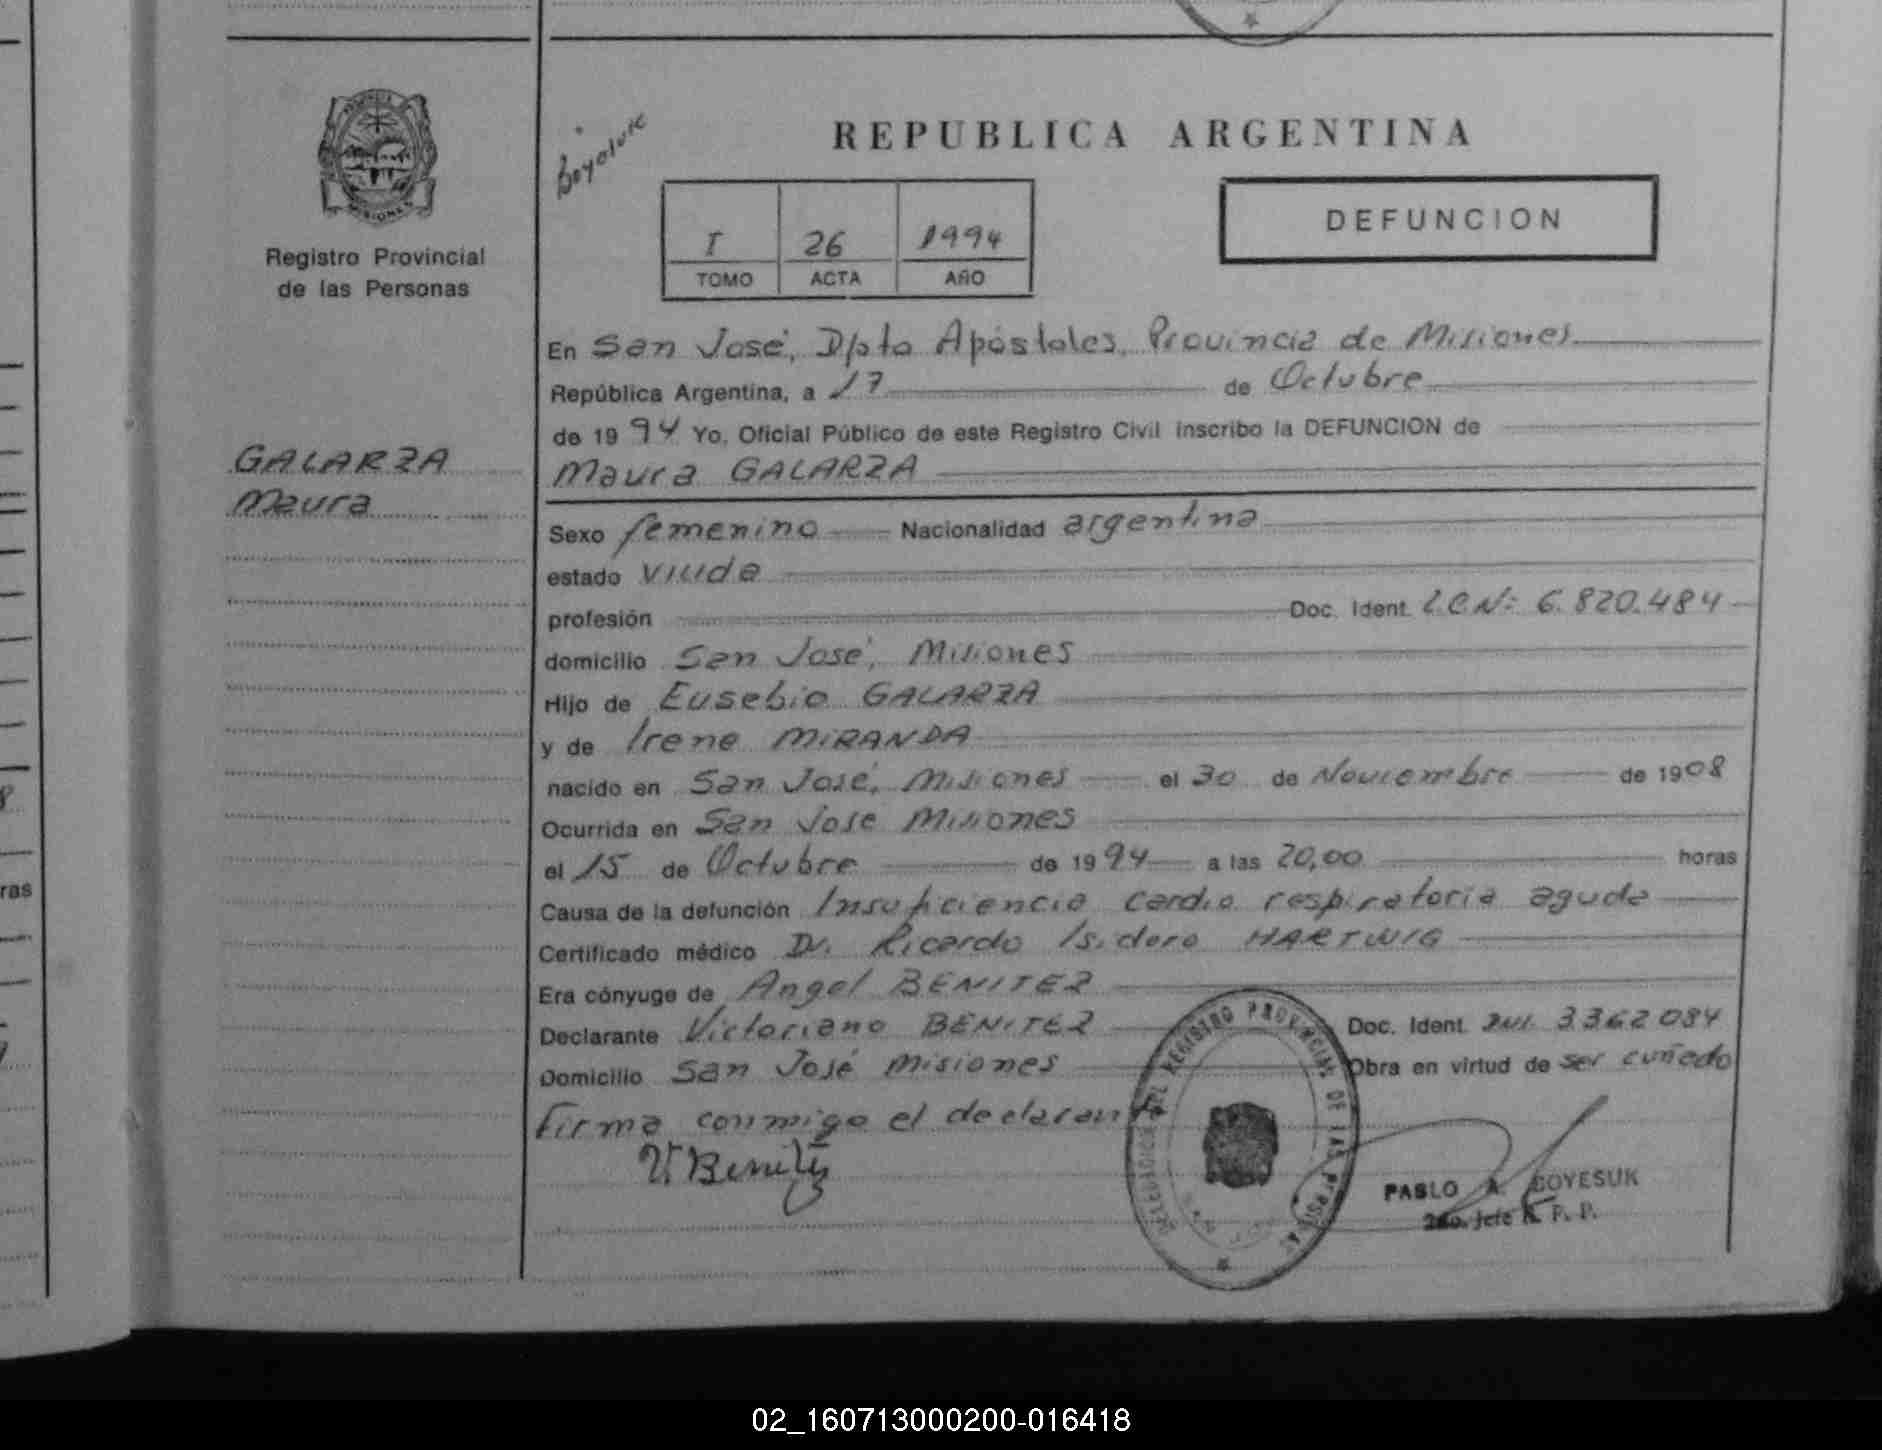 REPUBLICA ARGENTINA
DEFUNCION
I 26 1994
TOMO ACTA AÑO
PROVINCIA DE MISIONES
Registro Provincial
de las Personas
GALARZA
Maura
En San José, Dpto Apóstoles, Provincia de Misiones
República Argentina, a 17 de Octubre
de 1994 Yo, Oficial Público de este Registro Civil inscribo la DEFUNCION de
Maura GALARZA
Sexo femenino Nacionalidad argentina
estado viuda
profesión Doc. Ident. L.C.Nº 6.820.484
domicilio San José, Misiones
Hijo de Eusebio GALARZA
y de Irene MIRANDA
nacido en San José, Misiones el 30 de Noviembre de 1908
Ocurrida en San José Misiones
el 15 de Octubre de 1994 a las 20,00 horas
Causa de la defunción Insuficiencia cardio respiratoria aguda
Certificado médico Dr. Ricardo Isidoro HARTWIG
Era cónyuge de Angel BENITEZ
Declarante Victoriano BENITEZ Doc. Ident. DNI. 3362084
Domicilio San José Misiones Obra en virtud de ser cuñado
Firma conmigo el declarante
V. Benitez
DEL REGISTRO PROVINCIAL DE LAS PERSONAS
PABLO A. BOYESUK
2do. Jefe R. P. P.
02_160713000200-016418